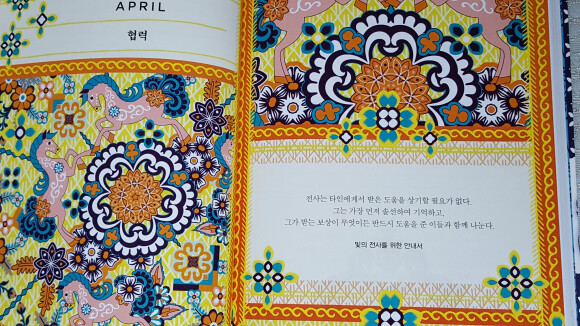 APRIL
협력
전사는 타인에게서 받은 도움을 상기할 필요가 없다.
그는 가장 먼저 솔선하여 기억하고,
그가 받는 보상이 무엇이든 반드시 도움을 준 이들과 함께 나눈다.
빛의 전사를 위한 안내서